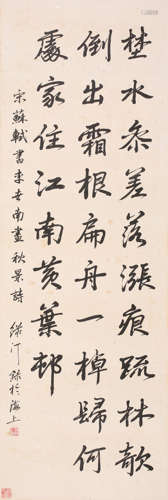 埜水叅差落漲痕疏林欹
倒出霜根扁舟一棹歸何
處家住江南黃葉邨
宋蘇軾書李世南畫秋景詩
於海上